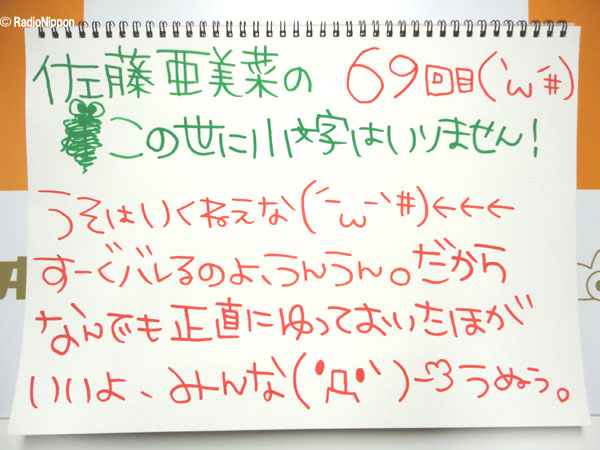 © RadioNippon
佐藤亜美菜の 69回目(`ω´#)
この世に小文字はいりません!
うそはいくねえな(´-ω-`#)←←←
すーぐバレるのよ、うんうん。だから
なんでも正直にゆっておいたほが
いいよ、みんな(°Д°`)-3うぬぅ。